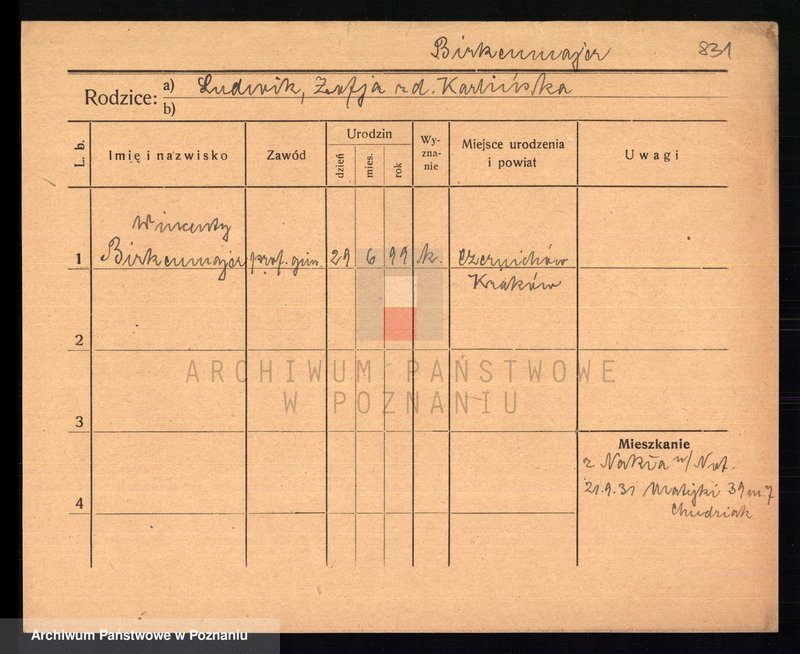 Birkenmajer 831
Rodzice: a) Ludwik, Zofja zd. Karlińska
b)
L. b.
Imię i nazwisko
Zawód
Urodzin
dzień
mies.
rok
Wy-
zna-
nie
Miejsce urodzenia
i powiat
Uwagi
Wincenty
1 Birkenmajer prof. gim. 29 6 99 k. Czernichów
Kraków
2
ARCHIWUM PAŃSTWOWE
W POZNANIU
3
Mieszkanie
z Nakła n/Not.
21.9.31 Matejki 39 m. 7
Chudziak
4
Archiwum Państwowe w Poznaniu